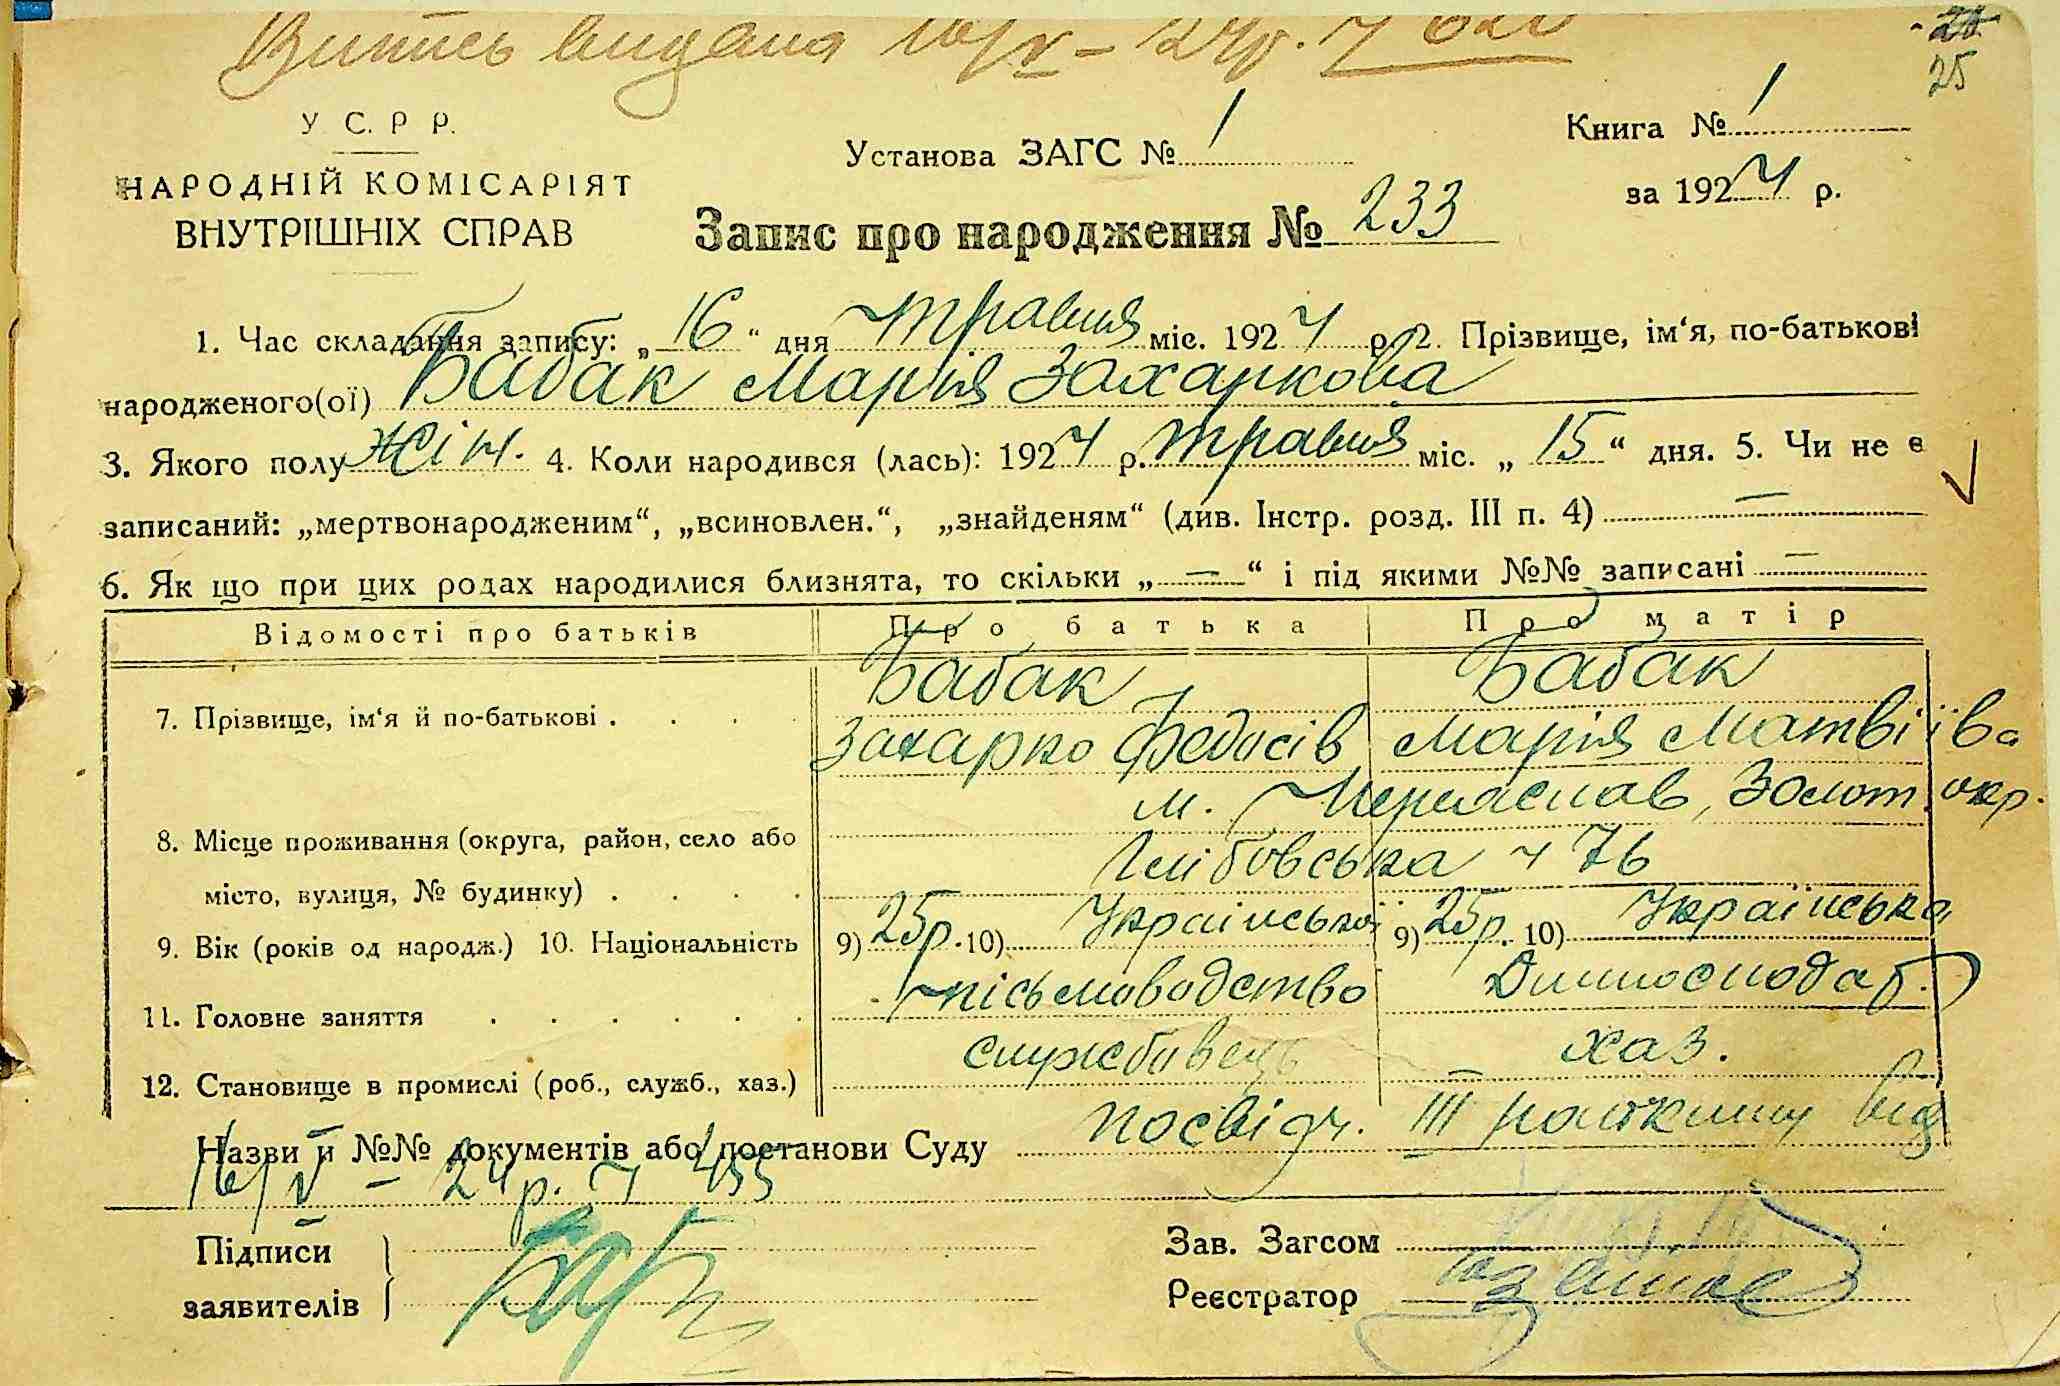 Витись видана 16/V – 24р. ч 620
25
У. С. Р. Р.
НАРОДНІЙ КОМІСАРІЯТ
ВНУТРІШНІХ СПРАВ
Установа ЗАГС № 1
Книга № 1
за 1924 р.
Запис про народження № 233
1. Час складання запису: „16“ дня травня міс. 1924 р. 2. Прізвище, ім‘я, по-батькові
народженого(ої) Бабак Марія Захаркова
3. Якого полу жін. 4. Коли народився (лась): 1924 р. травня міс. „15“ дня. 5. Чи не є
записаний: „мертвонародженим“, „всиновлен.“, „знайденям“ (див. Інстр. розд. III п. 4) —
6. Як що при цих родах народилися близнята, то скільки „—“ і під якими №№ записані —
Відомості про батьків Про батька Про матір
Бабак Бабак
7. Прізвище, ім‘я й по-батькові . . . .
Захарко Федосів Марія Матвіїва
м. Переяслав, Золот. окр.
8. Місце проживання (округа, район, село або
місто, вулиця, № будинку) . . . .
Глібовська ч 76
9. Вік (років од народж.) 10. Національність 9) 25р. 10) Українська 9) 25р. 10) Українська
11. Головне заняття . . . . . . пісьмоводство Домогосподар.
12. Становище в промислі (роб., служб., хаз.) службовець хаз.
Назви й №№ документів або постанови Суду посвідч. III райкому від
16/V – 24р. ч 455
Підписи
заявителів
Зав. Загсом
Реєстратор